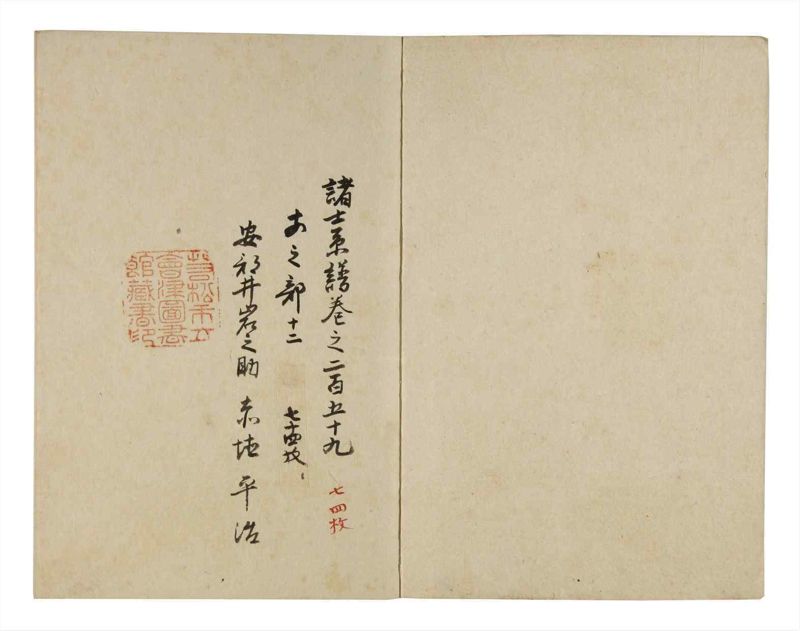 諸士系譜巻之二百五十九 七四枚
あ之部十二 七十四枚
安部井岩之助 赤埴平治
若松市立
會津圖書
館藏書印